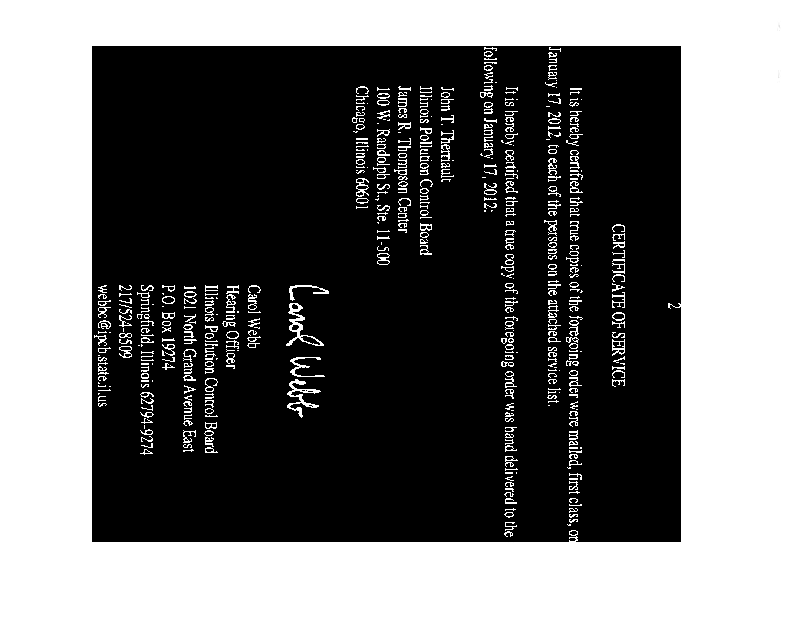 2
CERTIFICATE OF SERVICE
It is hereby certified that true copies of the foregoing order were mailed, first class, on
January 17, 2012, to each of the persons on the attached service list.
It is hereby certified that a true copy of the foregoing order was hand delivered to the
following on January 17, 2012:
John T. Therriault
Illinois Pollution Control Board
James R. Thompson Center
100 W. Randolph St., Ste. 11-500
Chicago, Illinois 60601
Carol Webb
Carol Webb
Hearing Officer
Illinois Pollution Control Board
1021 North Grand Avenue East
P.O. Box 19274
Springfield, Illinois 62794-9274
217/524-8509
webbc@ipcb.state.il.us